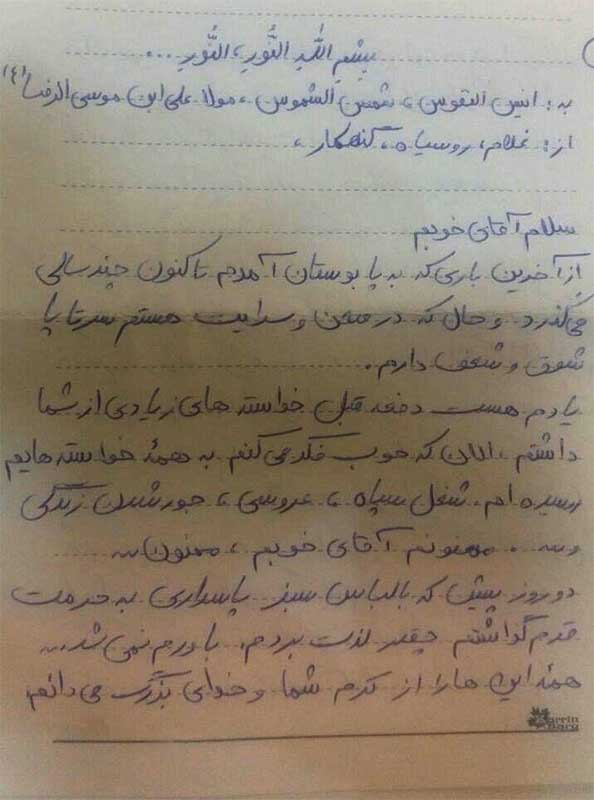 بِسْمِ اللّٰهِ النُّورِ، النُّورِ ...
به: انیس النفوس، شمس الشموس، مولا علی ابن موسی الرضا (ع)
از: غلام، روسیاه، گنهکار،
سلام آقای خوبم
از آخرین باری که به پا بوستان آمدم تا کنون چند سالی
می‌گذرد و حال که در صحن و سرایت هستم سر تا پا
شوق و شعف دارم.
یادم هست دفعه قبل خواسته های زیادی از شما
داشتم، الان که خوب فکر می کنم به همهٔ خواسته هایم
رسیده ام. شغل سپاه، عروسی، جور شدن زندگی
و... ممنونم آقای خوبم، ممنون...
دو روز پیش که با لباس سبز پاسداری به حرمت
قدم گذاشتم چقدر لذت بردم. باورم نمی شد...
همهٔ این ها را از کرم شما و خدای بزرگ می دانم